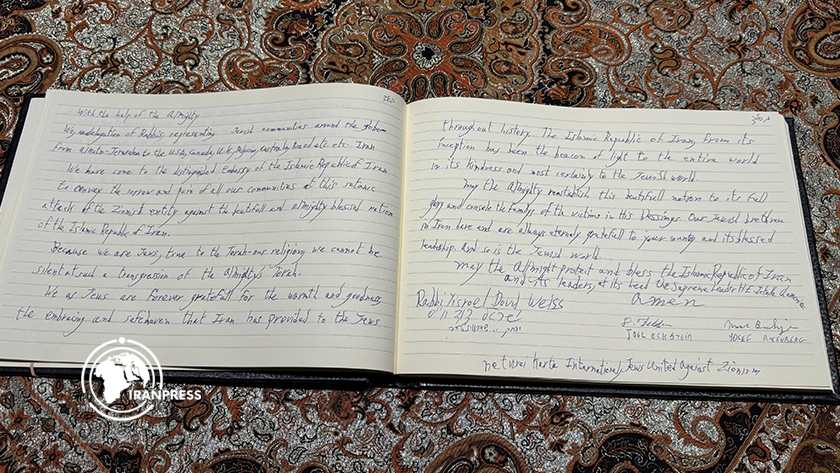 With the help of the Almighty
We, a delegation of Rabbi's representing Jewish communities around the globe
from Jerusalem to the USA, Canada, UK, etc. Iran
We have come to the Embassy of the Islamic Republic of Iran
to convey the sorrow and pain of all our communities at this satanic
attack of the Zionist entity against the beautifull and almighty blessed nation
of the Islamic Republic of Iran.
Because we are Jews, true to the Torah-our religion, we cannot be
silent at such a transgression of the Almighty's Torah.
We as Jews are forever gratefull for the warmth and goodness,
the embracing and safe haven that Iran has provided to the Jews
throughout history. The Islamic Republic of Iran, from its
inception has been the beacon of light to the entire world
in its kindness and most certainly to the Jewish world.
may the Almighty reestablish this beautifull nation to its full
glory and console the families of the victims in His blessings. Our Jewish brethren
in Iran have and are always eternely gratefull to your country and its blessed
leadership. And so is the Jewish world.
may the Allmight protect and bless the Islamic Republic of Iran
and its leaders, at its head the Supreme Leader H.E.
amen
Rabbi Yisroel Dovid Weiss
ישראל דוד ווייס
JOEL EKSTEIN
YOSEF
neturei Karta International, Jews United Against Zionism
IRANPRESS